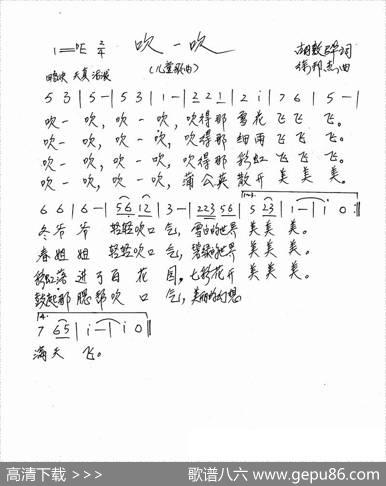 1=♭E 2/4 吹一吹 胡敦骅词
略快 天真 活泼 (儿童歌曲) 徐邦杰曲
5 3 | 5 - | 5 3 | 1 - | 2 2 1 | 2 i | 7 6 | 5 - |
吹一 吹, 吹一 吹, 吹得那 雪花 飞飞 飞。
吹一 吹, 吹一 吹, 吹得那 细雨 飞飞 飞。
吹一 吹, 吹一 吹, 吹得那 彩虹 飞飞 飞。
吹一 吹, 吹一 吹, 蒲公英 散开 美美 美。
6 6 | 6 - | 5 6 i 2 | 3 - | 2 2 3 5 6 | 5 2 3 | i - | i 0 :‖
冬爷 爷 轻轻吹口 气, 雪白的世界 美美 美。
春姐 姐 轻轻吹口 气, 碧绿的世界 美美 美。
彩虹落 进了百花 园, 七彩花开 美美 美。
鼓起那 腮帮吹口 气, 美丽的幻想
4.
7 6 5 | i - | i 0 ‖
满天 飞。
高清下载 >>> 歌谱八六 www.gepu86.com